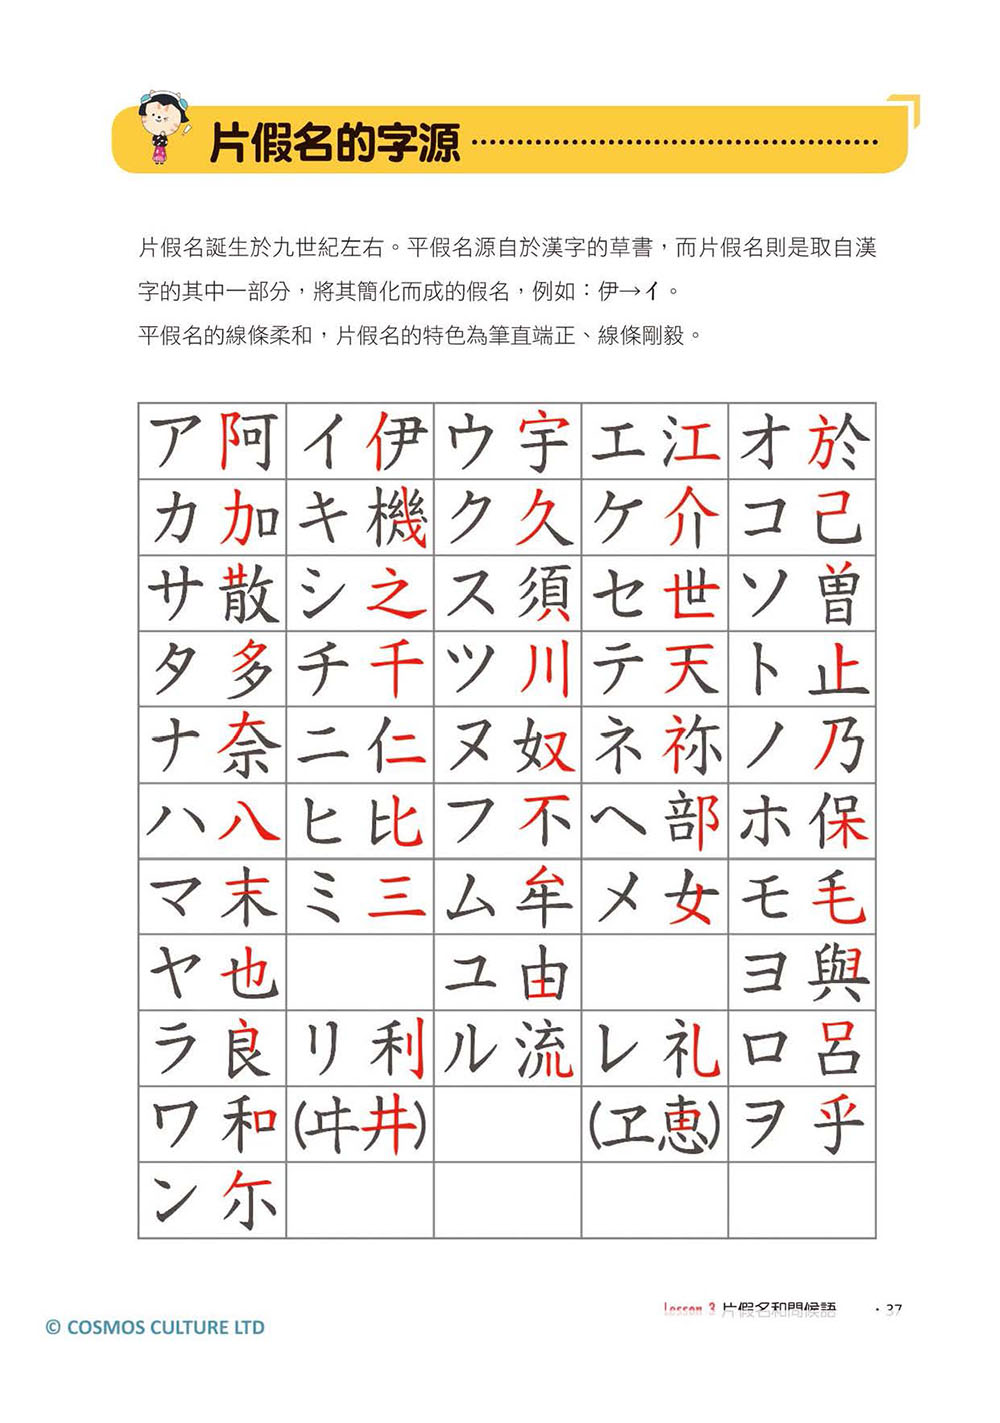 片假名的字源
片假名誕生於九世紀左右。平假名源自於漢字的草書，而片假名則是取自漢
字的其中一部分，將其簡化而成的假名，例如：伊→イ。
平假名的線條柔和，片假名的特色為筆直端正、線條剛毅。
ア 阿 イ 伊 ウ 宇 エ 江 オ 於
カ 加 キ 機 ク 久 ケ 介 コ 己
サ 散 シ 之 ス 須 セ 世 ソ 曽
タ 多 チ 千 ツ 川 テ 天 ト 止
ナ 奈 ニ 仁 ヌ 奴 ネ 祢 ノ 乃
ハ 八 ヒ 比 フ 不 ヘ 部 ホ 保
マ 末 ミ 三 ム 牟 メ 女 モ 毛
ヤ 也 ユ 由 ヨ 與
ラ 良 リ 利 ル 流 レ 礼 ロ 呂
ワ 和 (ヰ井) (ヱ恵) ヲ 乎
ン 尓
Lesson 3 片假名和問候語 ・37
© COSMOS CULTURE LTD